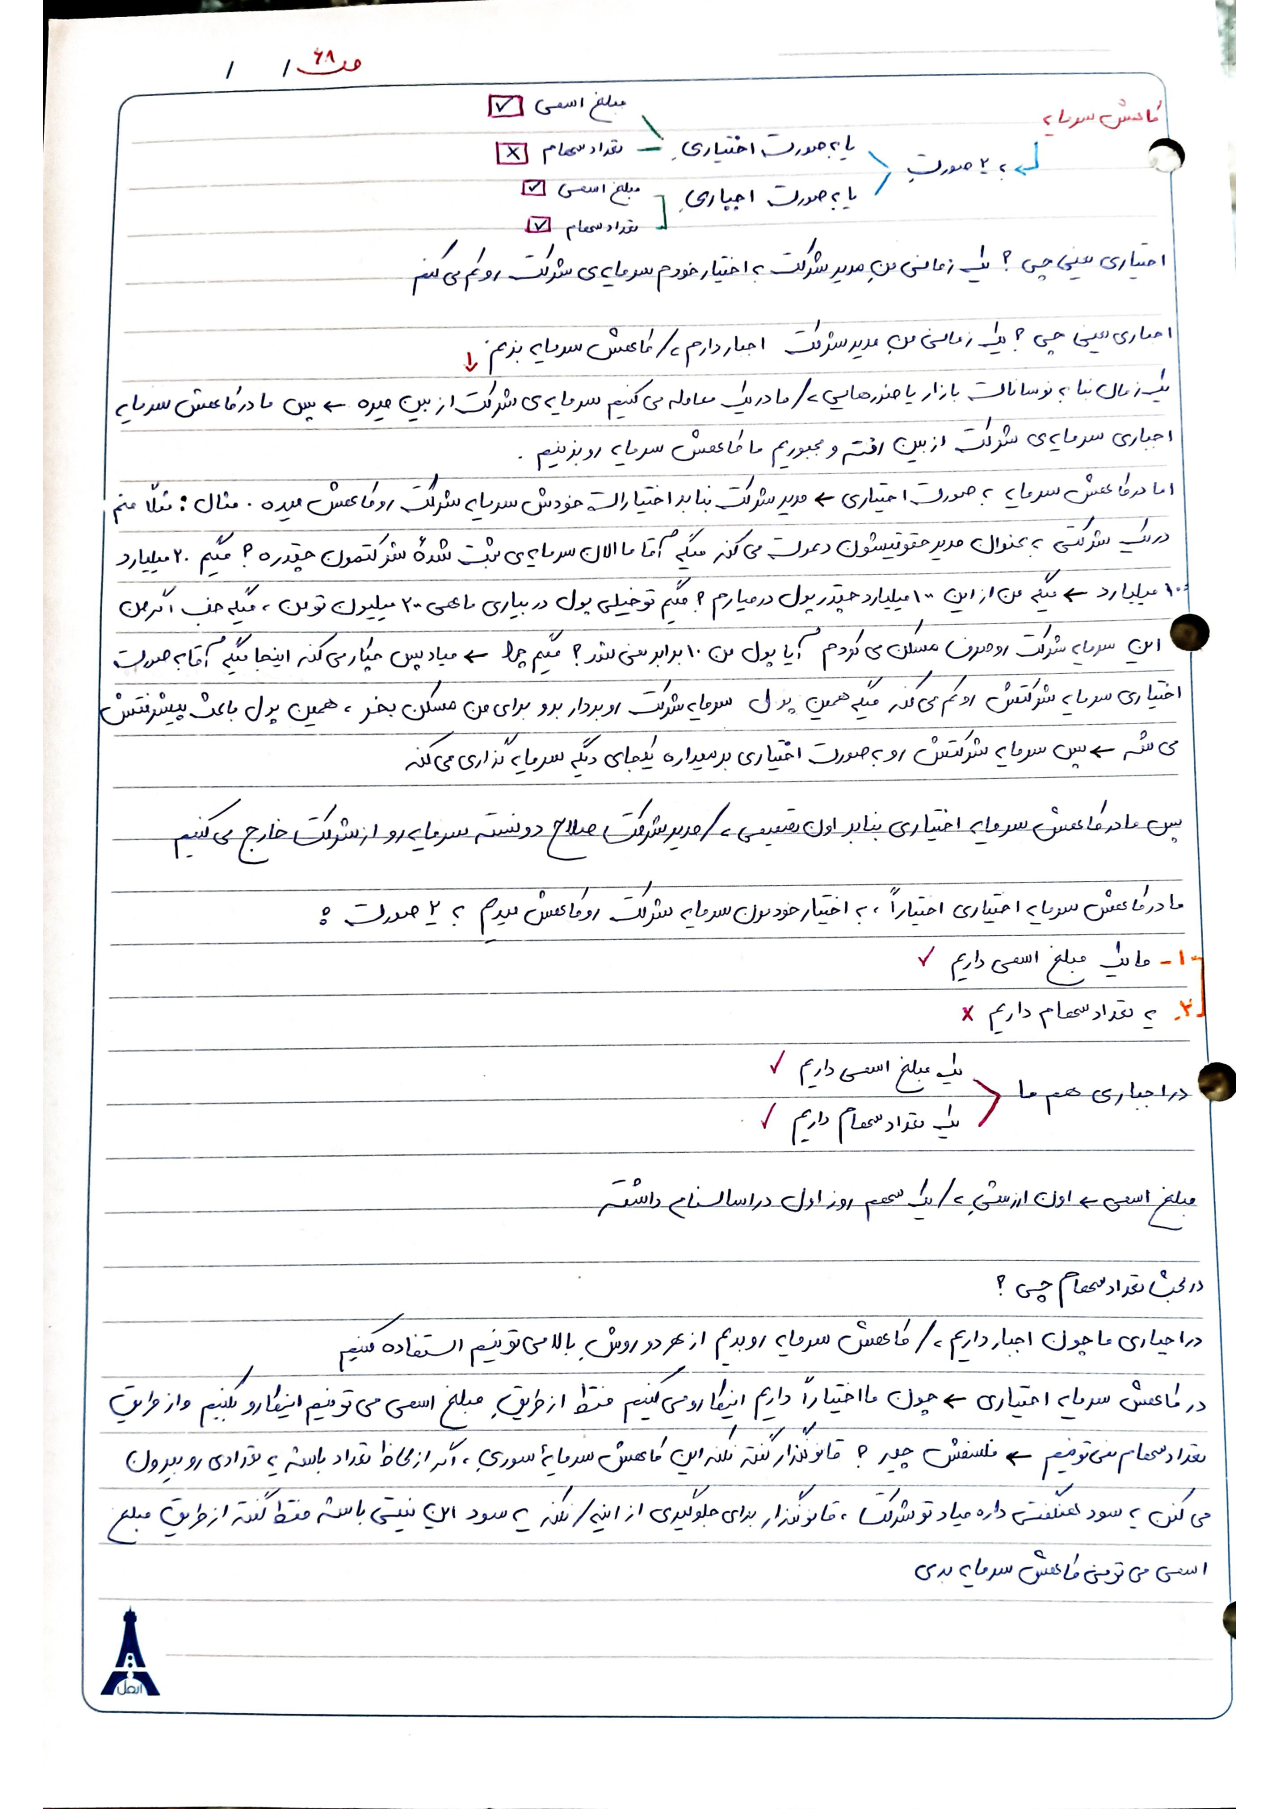 ص ۶۸
/ /
کاهش سرمایه
به ۲ صورت
یا به صورت اختیاری
مبلغ اسمی ✓
تعداد سهام ✗
یا به صورت اجباری
مبلغ اسمی ✓
تعداد سهام ✓
اختیاری یعنی چی؟ یک زمانی من مدیر شرکت به اختیار خودم سرمایه‌ی شرکت رو کم می‌کنم
اجباری یعنی چی؟ یک زمانی من مدیر شرکت اجبار دارم که کاهش سرمایه بزنم ↓
یک زمان بنا به نوسانات بازار یا ضررهایی که ما در یک معامله می‌کنیم سرمایه‌ی شرکت از بین میره ← پس ما در کاهش سرمایه
اجباری سرمایه‌ی شرکت از بین رفته و مجبوریم ما کاهش سرمایه رو بزنیم.
اما در کاهش سرمایه به صورت اختیاری ← مدیر شرکت بنا بر اختیارات خودش سرمایه شرکت رو کاهش میده. مثال: مثلاً منم
در یک شرکتی به عنوان مدیر حقوقیشون دعوت می‌کنه میگه آقا ما الان سرمایه‌ی ثبت شدهٔ شرکتمون چقدره؟ میگیم ۲۰ میلیارد
۱۰۰ میلیارد ← میگه من از این ۱۰۰ میلیارد چقدر پول در میارم؟ میگیم تو خیلی پول در بیاری ماهی ۲۰ میلیون تومن، میگه خب اگر من
این سرمایه شرکت رو صرف مسکن می‌کردم آیا پول من ۱۰ برابر نمی‌شد؟ میگیم چرا ← میاد پس چیکار می‌کنه اینجا میگه آقا به صورت
اختیاری سرمایه شرکتش رو کم می‌کنه میگه همین پول سرمایه شرکت رو بردار برو برای من مسکن بخر، همین پول باعث پیشرفتش
می‌شه ← پس سرمایه شرکتش رو به صورت اختیاری برمیداره یکجای دیگه سرمایه گذاری می‌کنه
پس ما در کاهش سرمایه اختیاری بنا بر اون تصمیمی که مدیر شرکت صلاح دونسته سرمایه رو از شرکت خارج می‌کنیم
ما در کاهش سرمایه اختیاری اختیاراً، به اختیار خودمون سرمایه شرکت رو کاهش میدیم به ۲ صورت:
۱- ما یک مبلغ اسمی داریم ✓
۲- یه تعداد سهام داریم ✗
در اجباری هم ما
یک مبلغ اسمی داریم ✓
یک تعداد سهام داریم ✓
مبلغ اسمی ← اون ارزشی که یک سهم روز اول در اساسنامه داشته
در بحث تعداد سهام چی؟
در اجباری ما چون اجبار داریم که کاهش سرمایه رو بدیم از هر دو روش بالا می‌تونیم استفاده کنیم
در کاهش سرمایه اختیاری ← چون ما اختیاراً داریم اینکارو می‌کنیم فقط از طریق مبلغ اسمی می‌تونیم اینکارو بکنیم و از طریق
تعداد سهام نمی‌تونیم ← فلسفش چیه؟ قانونگذار گفته نکنه این کاهش سرمایهٔ صوریه، اگه از لحاظ تعداد باشه یه تعدادی رو بیرون
می‌کنن یه سود هنگفتی داره میاد تو شرکت، قانونگذار برای جلوگیری از اینکه نکنه یه سود این نیتی باشه فقط گفته از طریق مبلغ
اسمی می‌تونی کاهش سرمایه بدی
ایفل